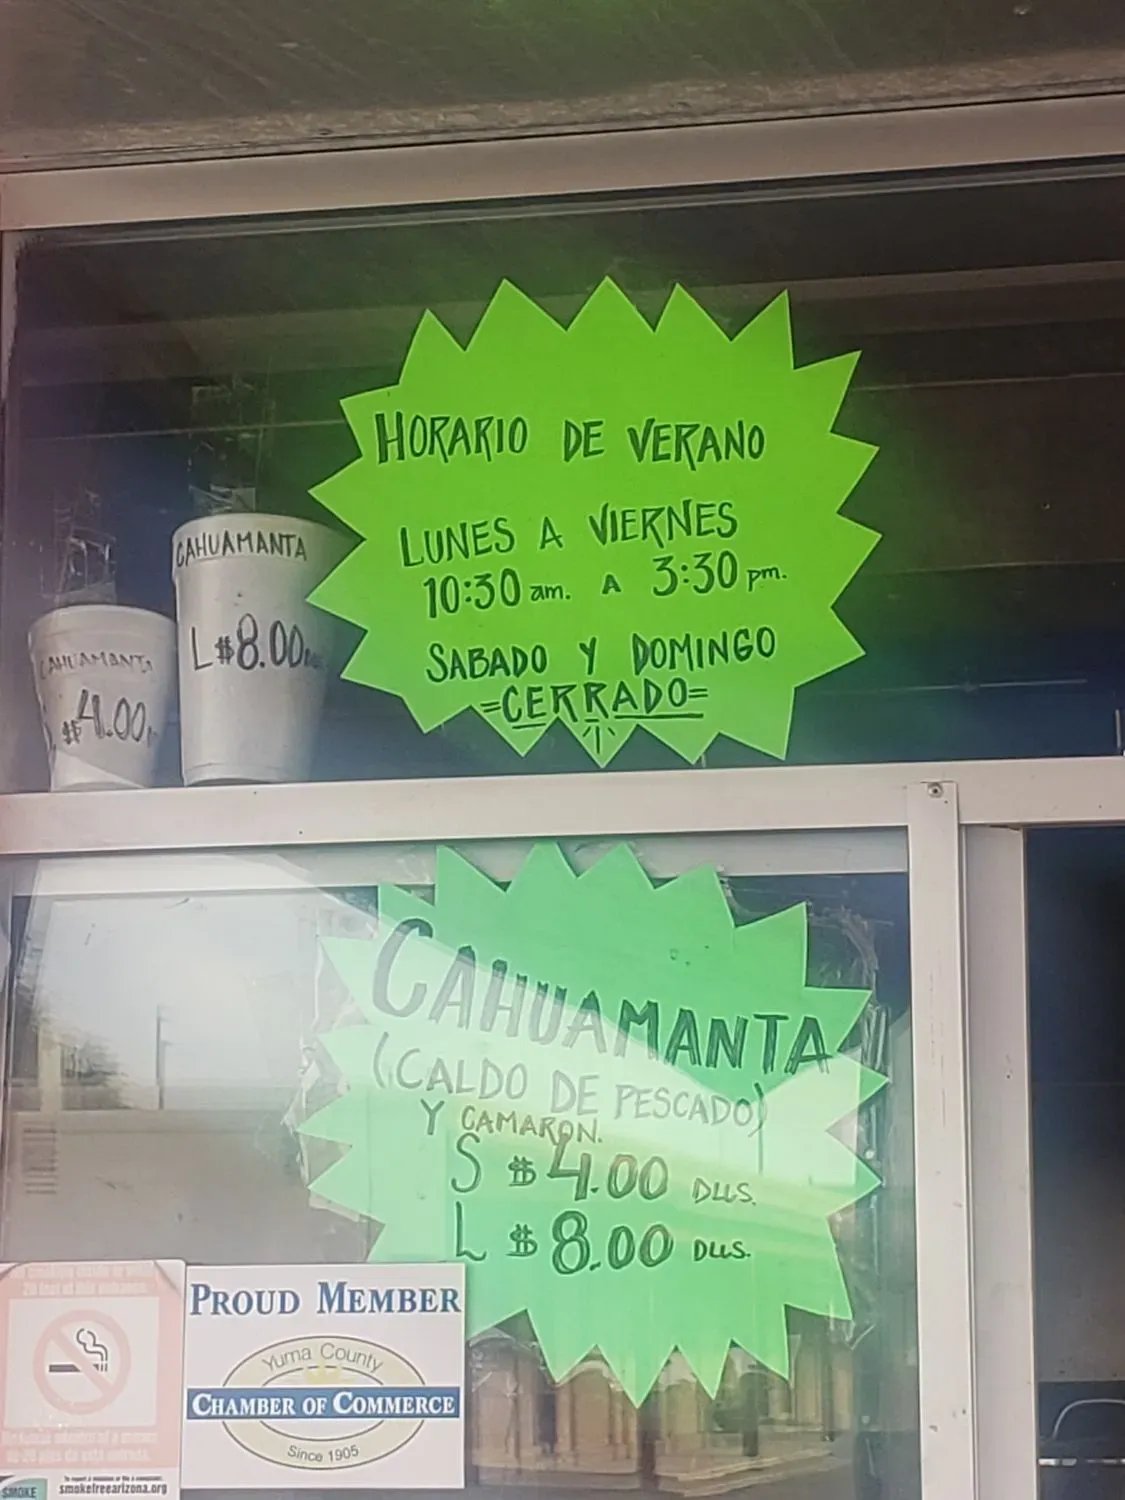 HORARIO DE VERANO
LUNES A VIERNES
10:30 am. A 3:30 pm.
SABADO Y DOMINGO
=CERRADO=
CAHUAMANTA
L $8.00
CAHUAMANTA
$4.00
CAHUAMANTA
(CALDO DE PESCADO)
Y CAMARON.
S $4.00 DLLS.
L $8.00 DLLS.
PROUD MEMBER
Yuma County
CHAMBER OF COMMERCE
Since 1905
SMOKE
smokefreearizona.org